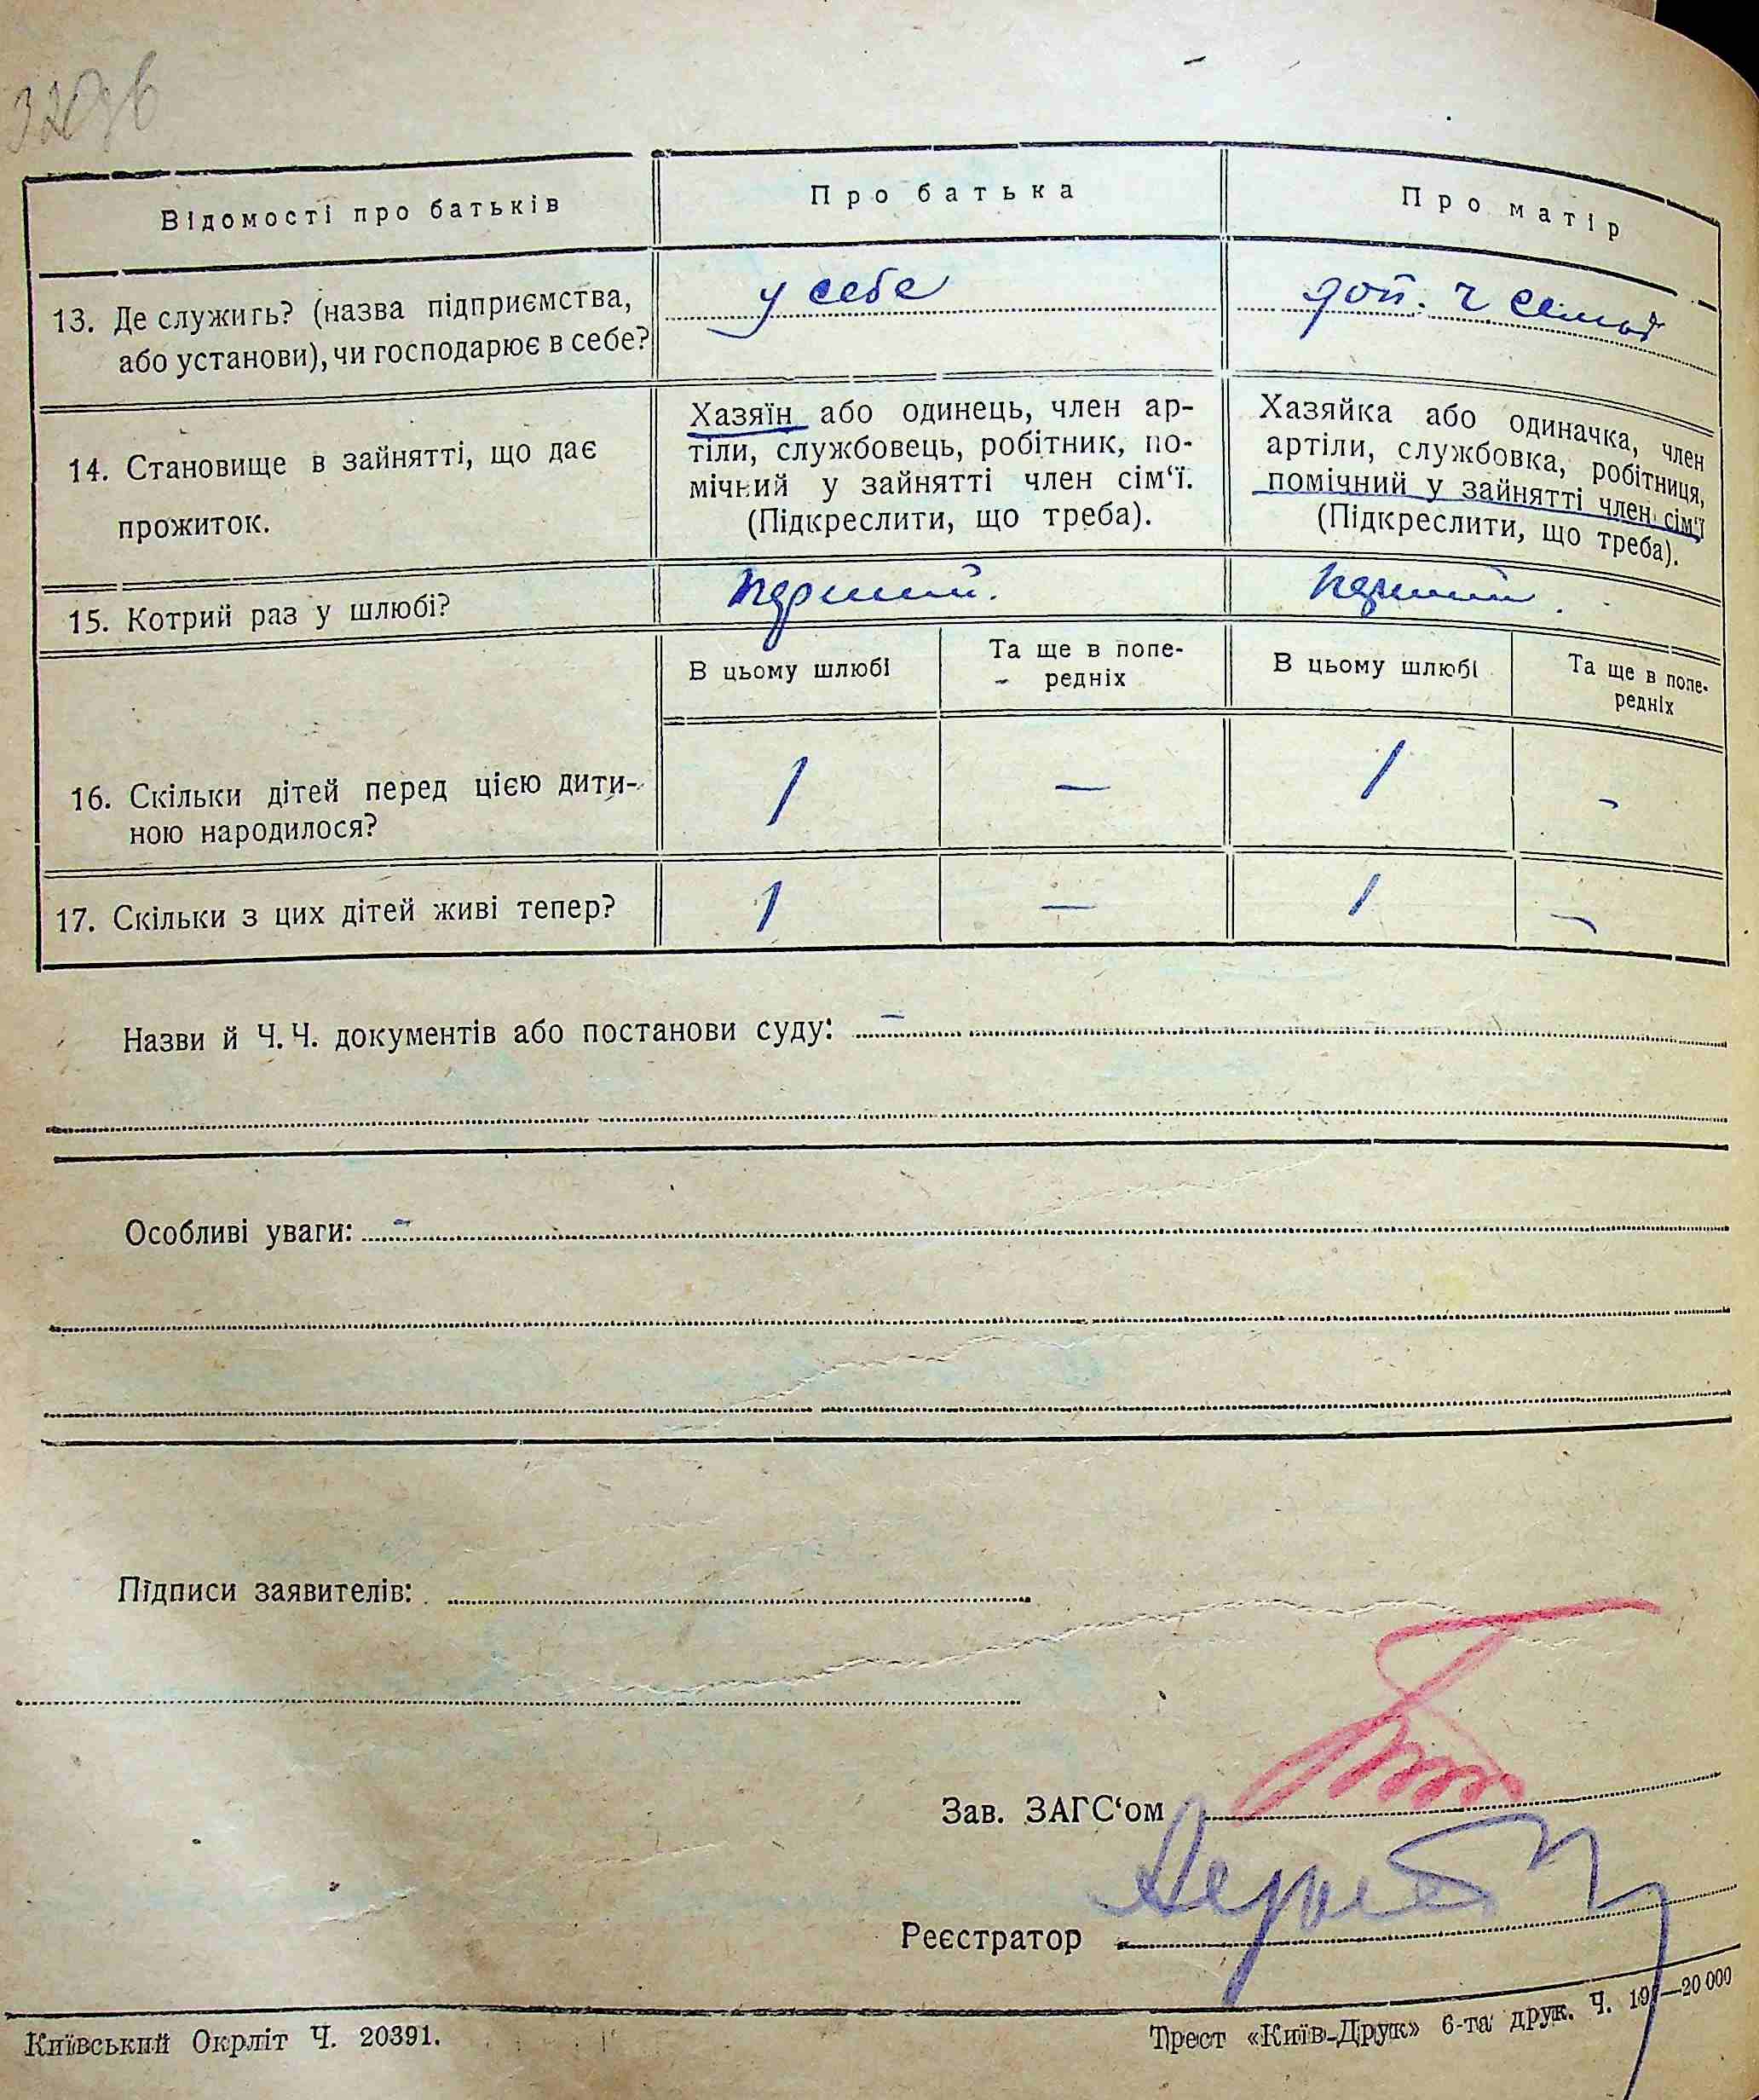 320зв
Відомості про батьків
Про батька
Про матір
13. Де служить? (назва підприємства,
або установи), чи господарює в себе?
у себе
доп. ч семьї
14. Становище в зайнятті, що дає
прожиток.
Хазяїн або одинець, член ар-
тіли, службовець, робітник, по-
мічний у зайнятті член сім‘ї.
(Підкреслити, що треба).
Хазяйка або одиначка, член
артіли, службовка, робітниця,
помічний у зайнятті член сім‘ї
(Підкреслити, що треба).
15. Котрий раз у шлюбі?
перший.
перший.
В цьому шлюбі
Та ще в попе-
редніх
В цьому шлюбі
Та ще в попе-
редніх
16. Скільки дітей перед цією дити-
ною народилося?
1 — 1 -
17. Скільки з цих дітей живі тепер?
1 — 1 -
Назви й Ч. Ч. документів або постанови суду: -
Особливі уваги: -
Підписи заявителів:
Зав. ЗАГС‘ом
Реєстратор
Київський Окрліт Ч. 20391.
Трест «Київ-Друк» 6-та друк. Ч. —20 000